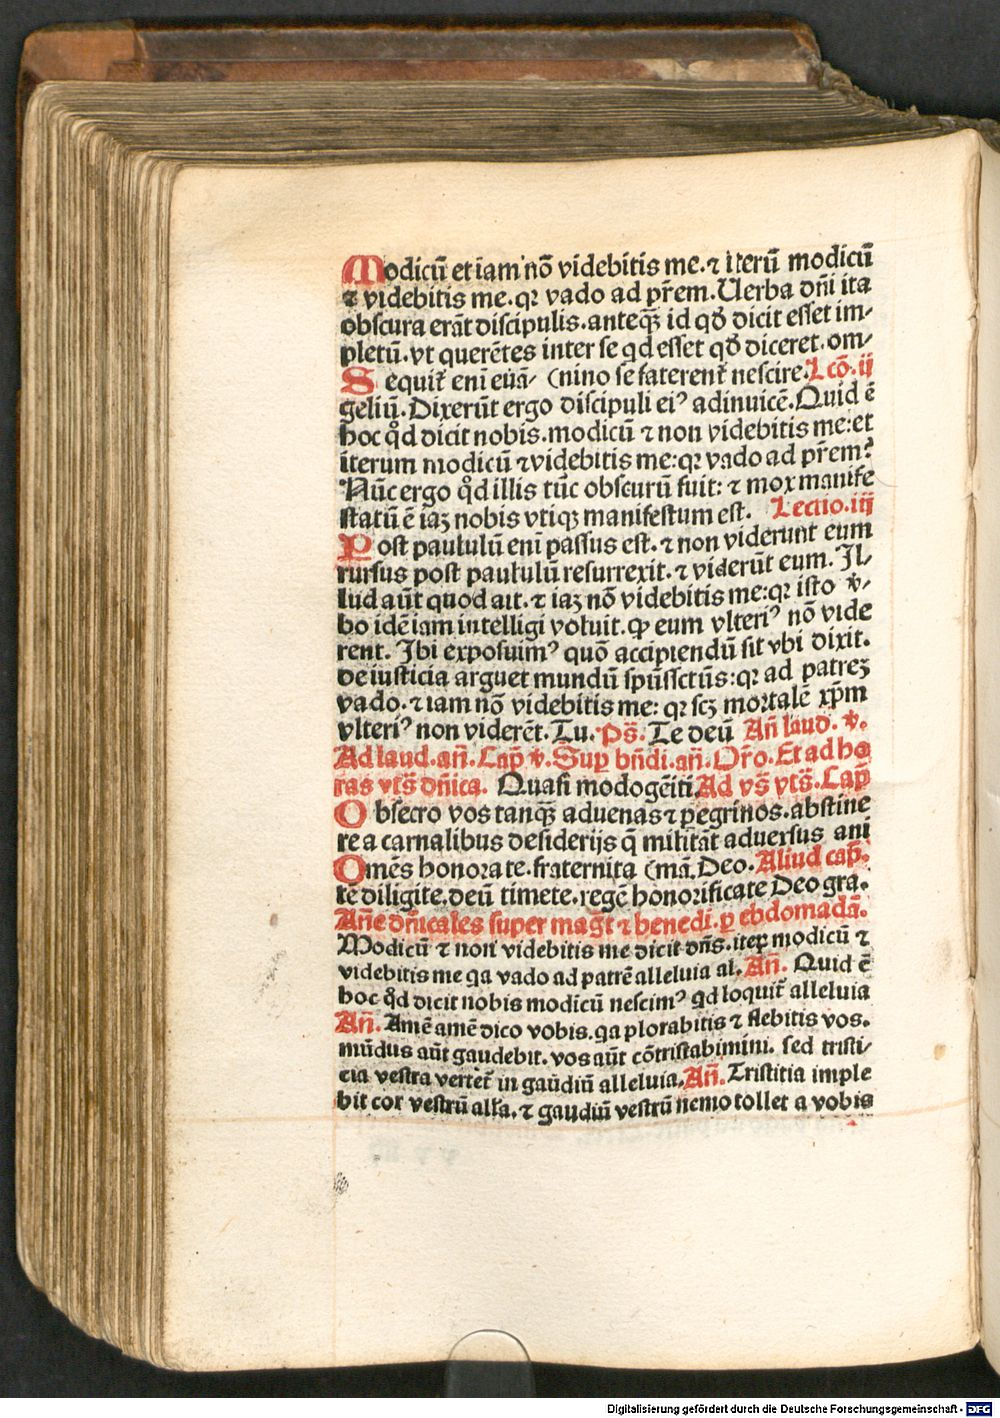 Modicū et iam nō videbitis me. ⁊ iterū modicū
⁊ videbitis me. qꝛ vado ad pr̄em. Uerba dn̄i ita
obscura erāt discipulis. anteqꝫ id qð dicit esset im-
pletū. vt querētes inter se qd esset qð diceret. om-
Sequit̄ enī euā- (nino se faterent̄ nescire. Lcō. ij
geliū. Dixerūt ergo discipuli eiꝰ adinuicē. Quid ē
hoc qd̄ dicit nobis. modicū ⁊ non videbitis me: et
iterum modicū ⁊ videbitis me: qꝛ vado ad pr̄em?
Nūc ergo qd̄ illis tūc obscurū fuit: ⁊ mox manife
statū ē iaꝫ nobis vtiqꝫ manifestum est. Lectio. iij
Post paululū enī passus est. ⁊ non viderunt eum
rursus post paululū resurrexit. ⁊ viderūt eum. Il-
lud aūt quod ait. ⁊ iaꝫ nō videbitis me: qꝛ isto v̄-
bo idē iam intelligi voluit. ꝙ eum vlteriꝰ nō vide
rent. Ibi exposuimꝰ quō accipiendū sit vbi dixit.
de iusticia arguet mundū spūssctūs: qꝛ ad patreꝫ
vado. ⁊ iam nō videbitis me: qꝛ scꝫ mortalē xp̄m
vlteriꝰ non viderēt. Tu. Ps̄. Te deū An̄ laud. v̄.
Ad laud. an̄. Cap̄ v̄. Suꝑ bn̄di. an̄. Or̄o. Et ad ho
ras vts̄ dn̄ica. Quasi modogēiti. Ad vs̄ vts̄. Cap̄
Obsecro vos tanqꝫ aduenas ⁊ ꝑegrinos. abstine
re a carnalibus desiderijs q̄ militāt aduersus ani
Omēs honorate. fraternita (mā. Deo. Aliud cap̄.
tē diligite. deū timete. regē honorificate Deo gra.
An̄e dn̄icales super maḡt ⁊ benedi. ꝑ ebdomadā.
Modicū ⁊ non videbitis me dicit dn̄s. iteꝝ modicū ⁊
videbitis me qa vado ad patrē alleluia al. An̄. Quid ē
hoc qd̄ dicit nobis modicū nescimꝰ qd loquit̄ alleluia
An̄. Amē amē dico vobis. qa plorabitis ⁊ flebitis vos.
mūdus aūt gaudebit. vos aūt cōtristabimini. sed tristi-
cia vestra vertet̄ in gaūdiū alleluia. An̄. Tristitia imple
bit cor vestrū all'a. ⁊ gaudiū vestrū nemo tollet a vobis
Digitalisierung gefördert durch die Deutsche Forschungsgemeinschaft - DFG